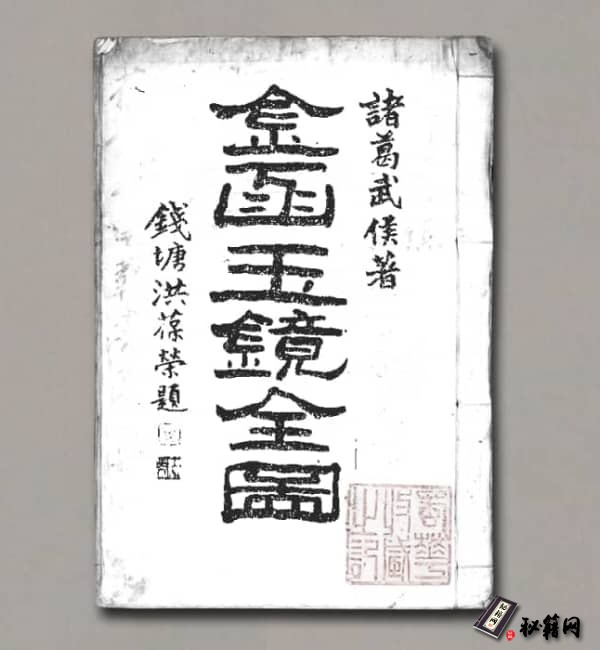 諸葛武侯著
金函玉鏡全圖
錢塘洪葆榮題
秘籍网